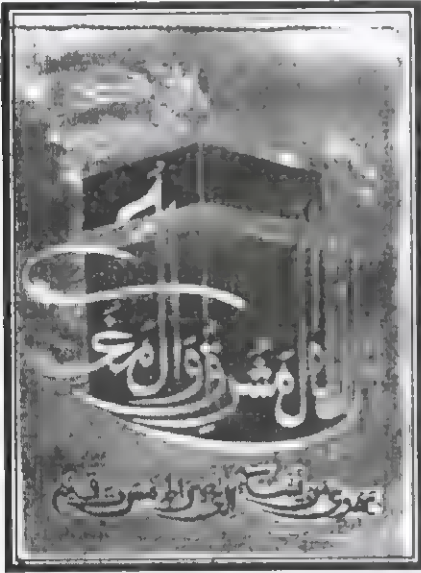 المشرق والمغرب
يهدي من يشاء الى صراط مستقيم